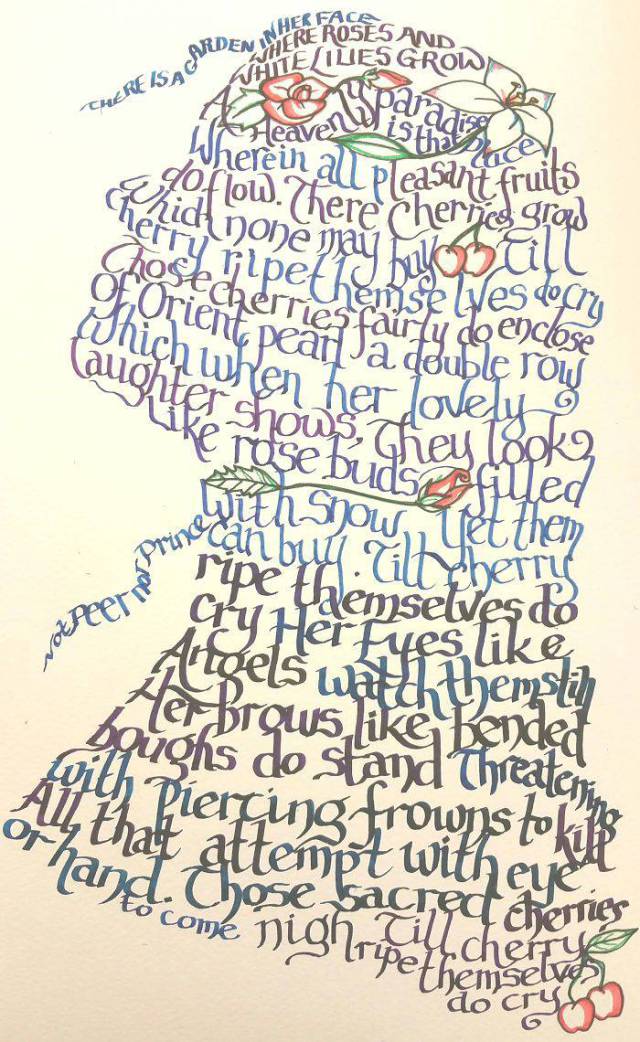 THERE IS A GARDEN IN HER FACE
WHERE ROSES AND
WHITE LILIES GROW
A Heavenly paradise
is that place
Wherein all pleasant fruits
do flow. There Cherries grow
Which none may buy Till
Cherry ripe themselves do cry
Those cherries fairly do enclose
Of Orient pearl a double row
Which when her lovely
Laughter shows, They look
Like rose buds filled
With snow Yet them
Not Peer nor Prince can buy. Till cherry
ripe themselves do
cry Her Eyes like
Angels watch them still
Her brows like bended
boughs do stand Threatening
with piercing frowns to kill
All that attempt with eye
or hand. Those sacred cherries
to come nigh Till cherry
ripe themselves
do cry